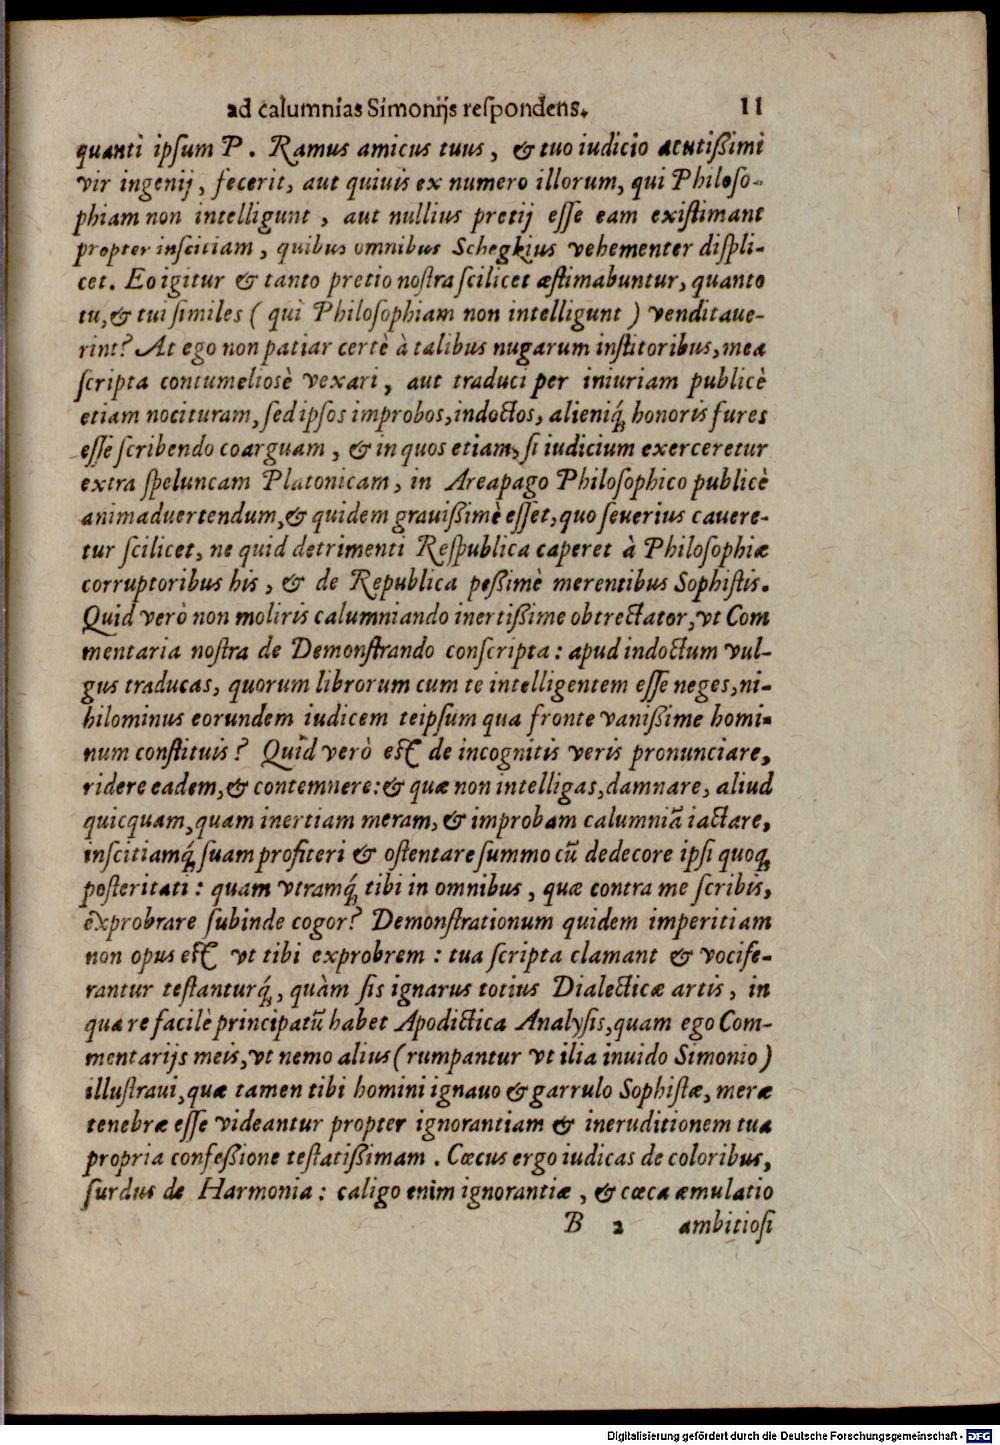 ad calumnias Simonijs reſpondens. 11
quanti ipſum P. Ramus amicus tuus, & tuo iudicio acutißimi
vir ingenij, fecerit, aut quiuis ex numero illorum, qui Philoſo-
phiam non intelligunt, aut nullius pretij eſſe eam exiſtimant
propter inſcitiam, quibus omnibus Schegkius vehementer diſpli-
cet. Eo igitur & tanto pretio noſtra ſcilicet æſtimabuntur, quanto
tu, & tui ſimiles (qui Philoſophiam non intelligunt) venditaue-
rint? At ego non patiar certè à talibus nugarum inſtitoribus, mea
ſcripta contumelioſè vexari, aut traduci per iniuriam publicè
etiam nocituram, ſed ipſos improbos, indoctos, alieniq́; honoris fures
eſſe ſcribendo coarguam, & in quos etiam, ſi iudicium exerceretur
extra ſpeluncam Platonicam, in Areapago Philoſophico publicè
animaduertendum, & quidem grauißimè eſſet, quo ſeuerius cauere-
tur ſcilicet, ne quid detrimenti Reſpublica caperet à Philoſophiæ
corruptoribus his, & de Republica peßimè merentibus Sophiſtis.
Quid verò non moliris calumniando inertißime obtrectator, vt Com
mentaria noſtra de Demonſtrando conſcripta: apud indoctum vul-
gus traducas, quorum librorum cum te intelligentem eſſe neges, ni-
hilominus eorundem iudicem teipſum qua fronte vanißime homi-
num conſtituis? Quid verò eſt de incognitis veris pronunciare,
ridere eadem, & contemnere: & quæ non intelligas, damnare, aliud
quicquam, quam inertiam meram, & improbam calumniã iactare,
inſcitiamq́; ſuam profiteri & oſtentare ſummo cũ dedecore ipſi quoq;
poſteritati: quam vtramq́; tibi in omnibus, quæ contra me ſcribis,
exprobrare ſubinde cogor? Demonſtrationum quidem imperitiam
non opus eſt vt tibi exprobrem: tua ſcripta clamant & vocife-
rantur teſtanturq́;, quàm ſis ignarus totius Dialecticæ artis, in
qua re facilè principatũ habet Apodictica Analyſis, quam ego Com-
mentarijs meis, vt nemo alius (rumpantur vt ilia inuido Simonio)
illuſtraui, quæ tamen tibi homini ignauo & garrulo Sophiſtæ, meræ
tenebræ eſſe videantur propter ignorantiam & ineruditionem tua
propria confeßione teſtatißimam. Cœcus ergo iudicas de coloribus,
ſurdus de Harmonia: caligo enim ignorantiæ, & cœca æmulatio
B 2 ambitioſi
Digitalisierung gefördert durch die Deutsche Forschungsgemeinschaft - DFG